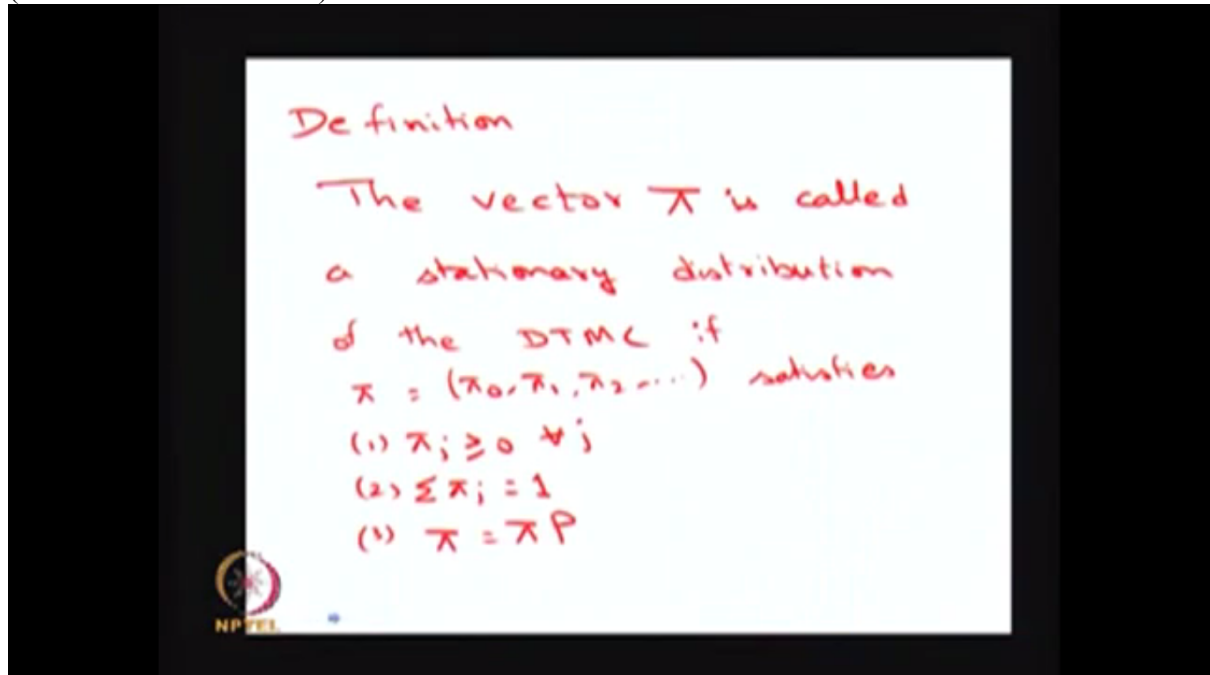 Definition
The vector π is called
a stationary distribution
of the DTMC if
π = (π₀, π₁, π₂, ...) satisfies
(1) π_j ≥ 0 ∀ j
(2) Σ π_j = 1
(3) π = π P
NPTEL